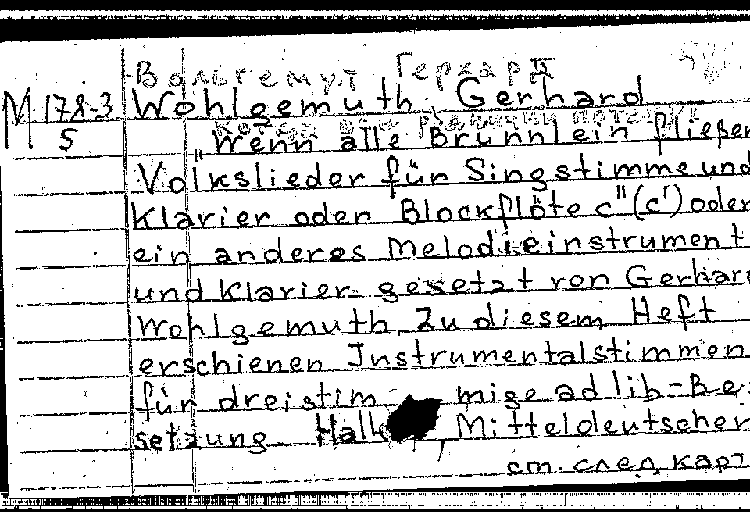 Вольгемут Герхард
M 178-3
5
Wohlgemuth, Gerhard
"Wenn alle Brünnlein fließen
Volkslieder für Singstimme und
Klavier oder Blockflöte c"(c') oder
ein anderes Melodieinstrument
und Klavier gesetzt von Gerhard
Wohlgemuth. Zu diesem Heft
erschienen Instrumentalstimmen
für dreistim mige ad lib-Be-
setzung. Halle, Mitteldeutscher
см. след. карт